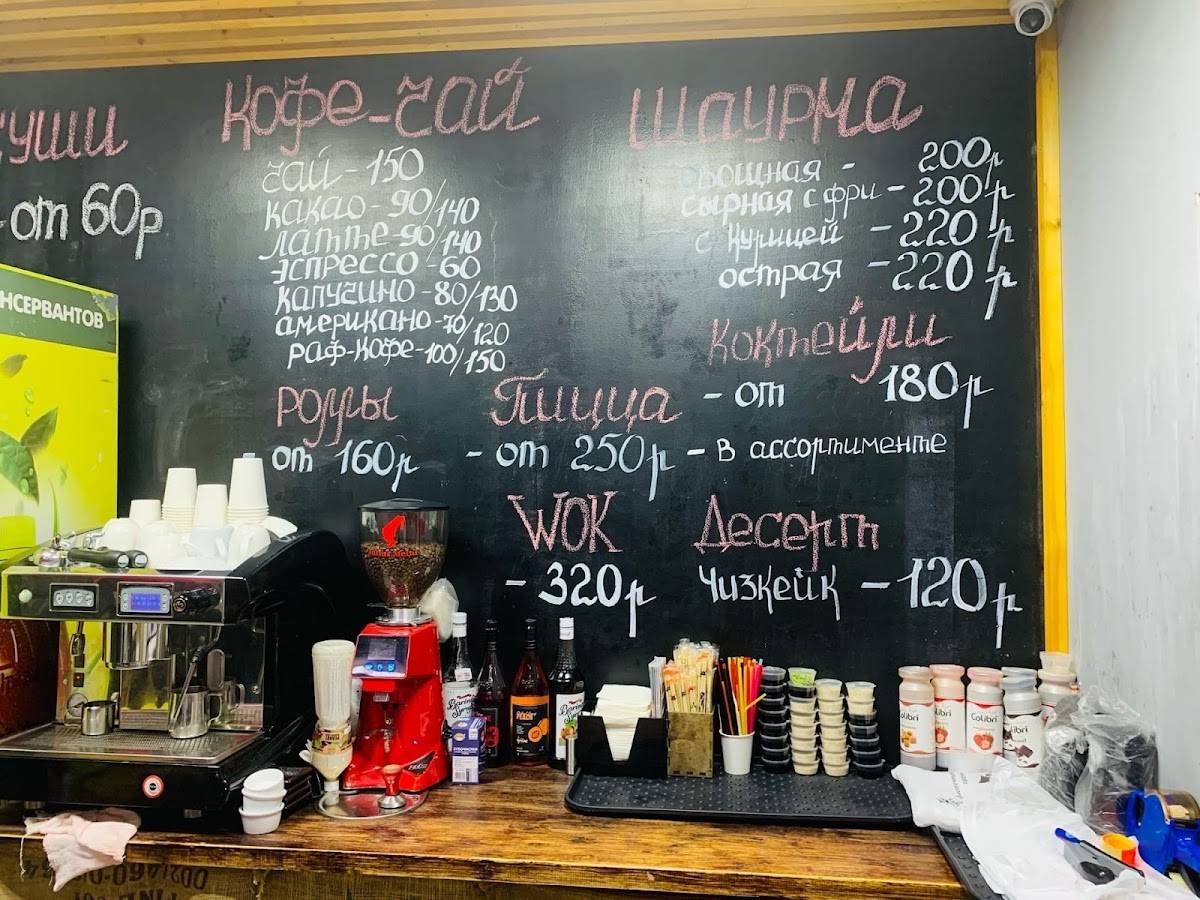 суши
- от 60р
Кофе-чай
чай - 150
какао - 90/140
латте - 90/140
эспрессо - 60
капучино - 80/130
американо - 70/120
раф-кофе - 100/150
Шаурма
овощная - 200р
сырная с фри - 200р
с курицей - 220р
острая - 220р
Коктейли
- от 180р
Роллы
от 160р
Пицца
- от 250р - в ассортименте
WOK
- 320р
Десерт
Чизкейк - 120р
НСЕРВАНТОВ
Julius Meinl
Colibri
Colibri
Colibri